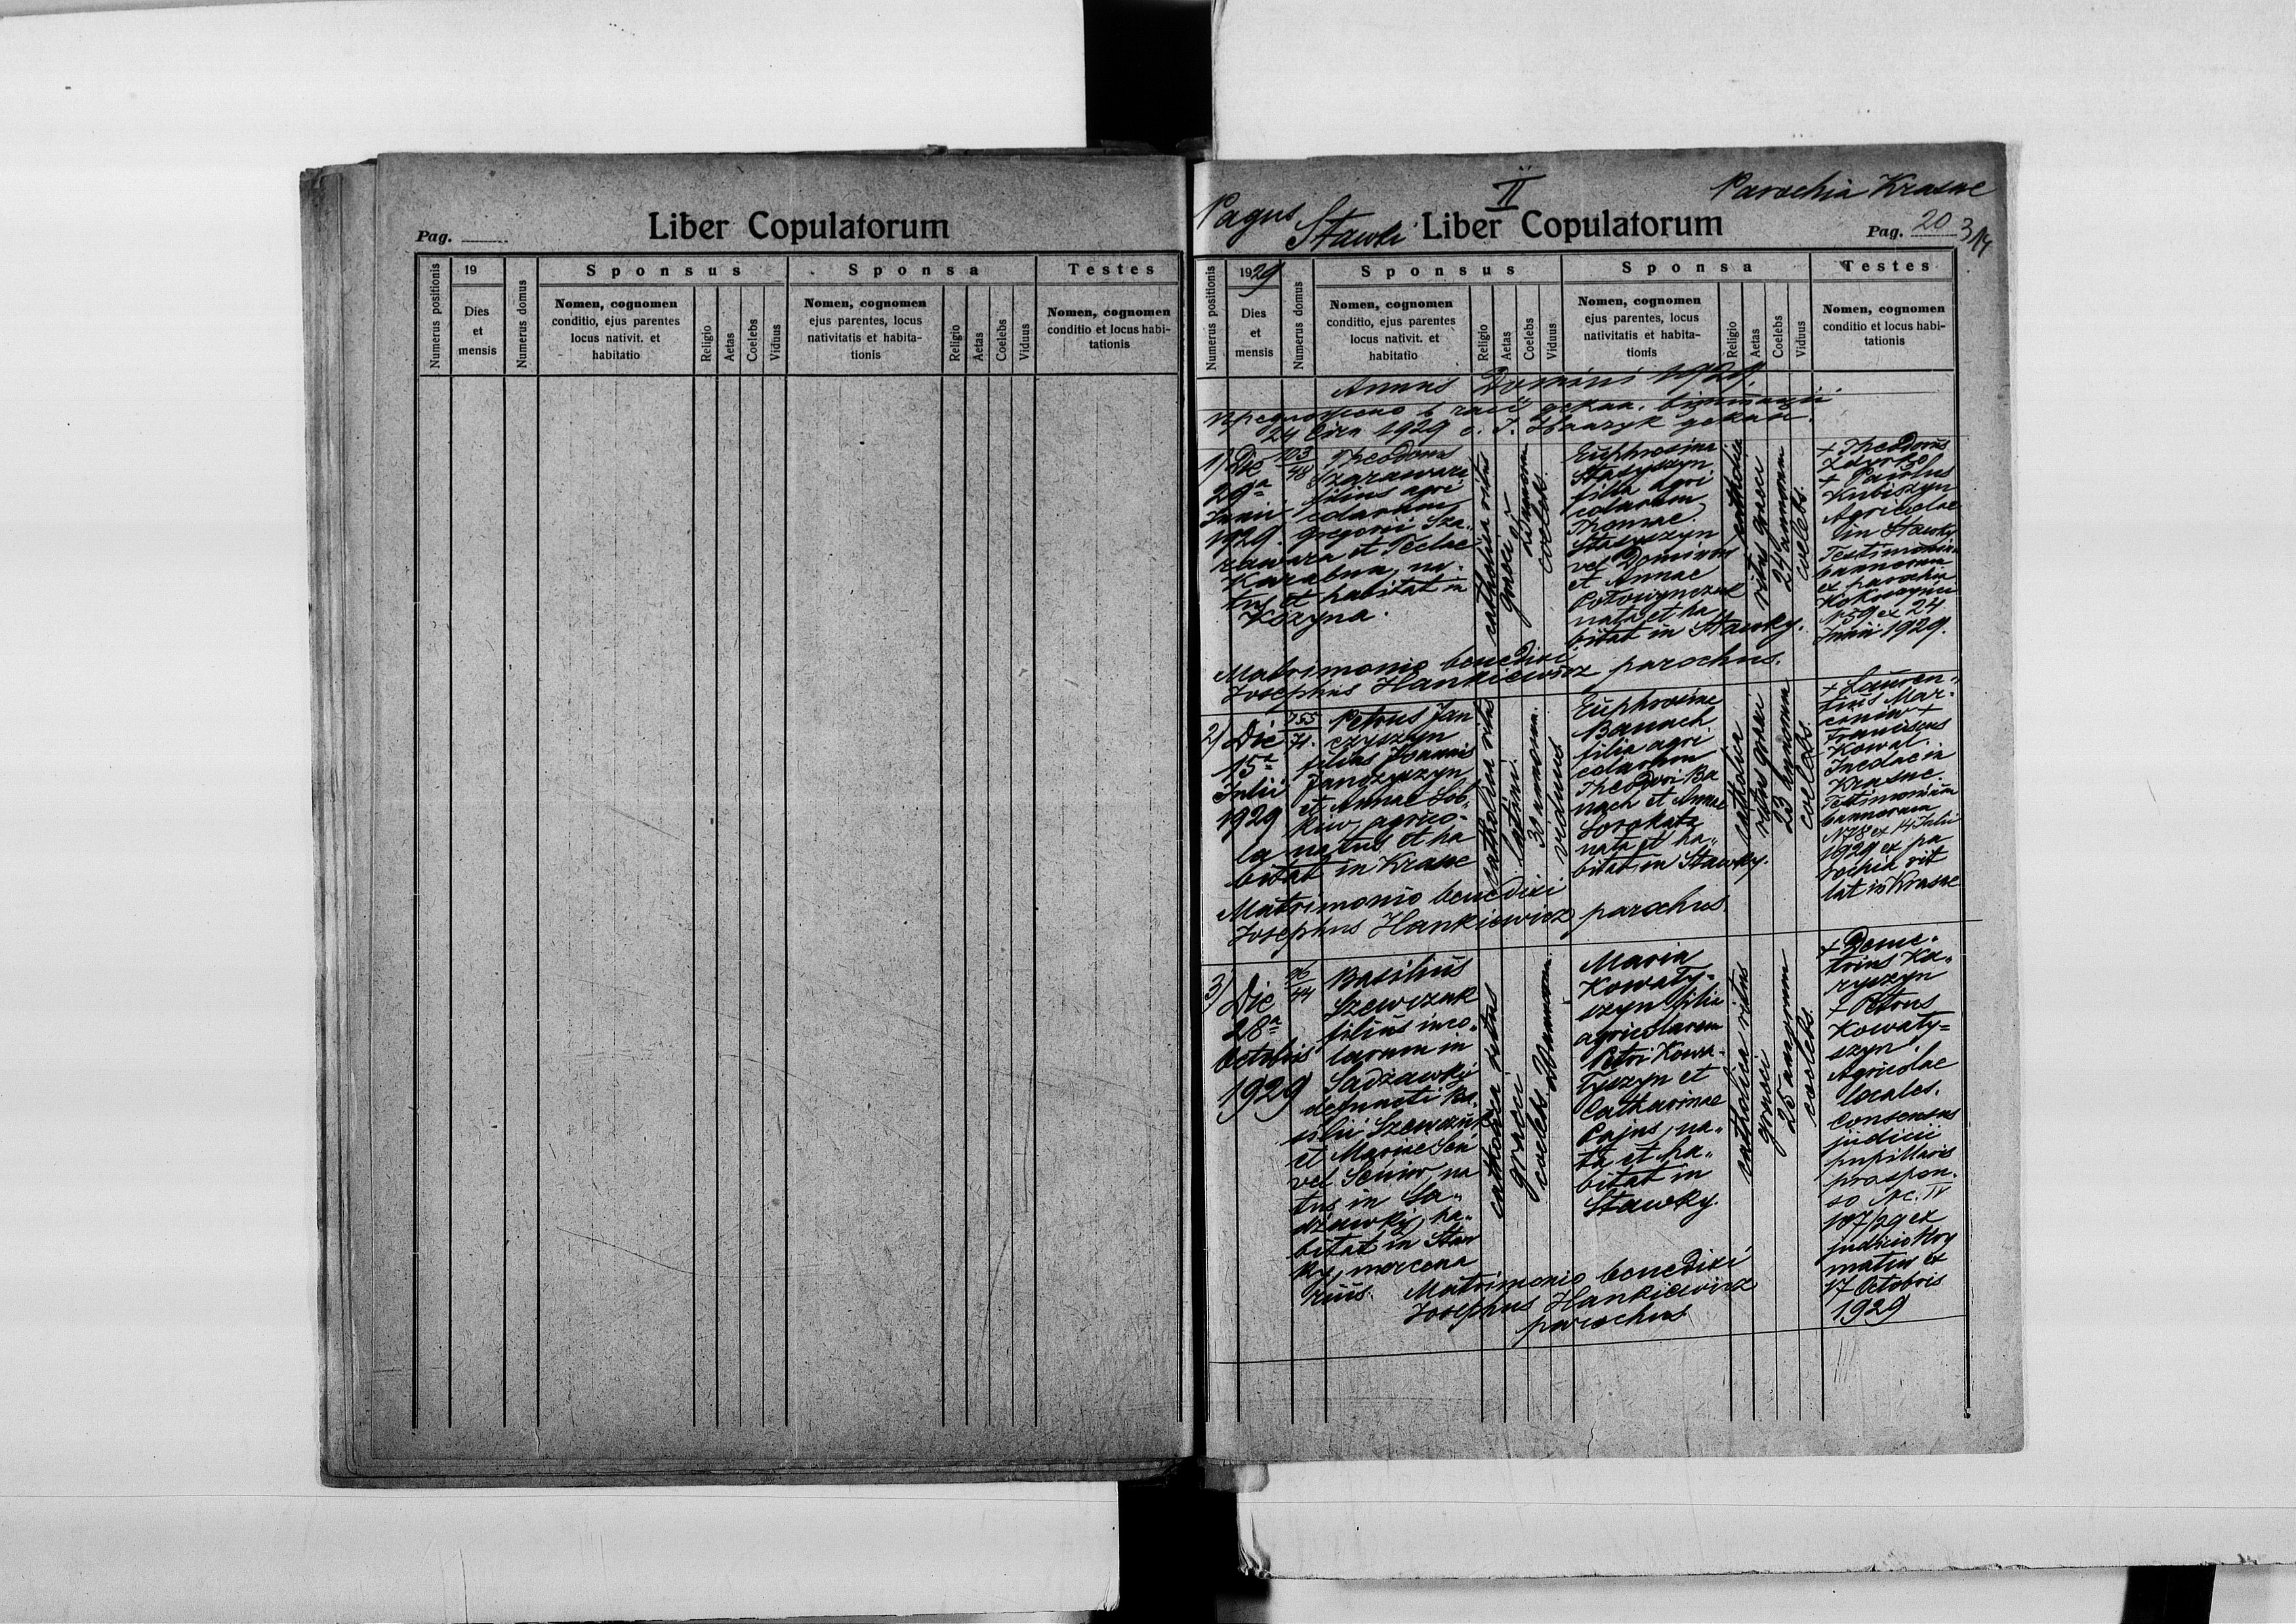 Pag.
Liber Copulatorum
Numerus positionis
19
Dies
et
mensis
Numerus domus
Sponsus
Nomen, cognomen
conditio, ejus parentes
locus nativit. et
habitatio
Religio
Aetas
Coelebs
Viduus
Sponsa
Nomen, cognomen
ejus parentes, locus
nativitatis et habita-
tionis
Religio
Aetas
Coelebs
Viduus
Testes
Nomen, cognomen
conditio et locus habi-
tationis
II
Parochia Krasne
Pagus
Stawki
Liber Copulatorum
Pag. 20
314
Numerus positionis
1929
Dies
et
mensis
Numerus domus
Sponsus
Nomen, cognomen
conditio, ejus parentes
locus nativit. et
habitatio
Religio
Aetas
Coelebs
Viduus
Sponsa
Nomen, cognomen
ejus parentes, locus
nativitatis et habita-
tionis
Religio
Aetas
Coelebs
Viduus
Testes
Nomen, cognomen
conditio et locus habi-
tationis
Annus Domini 1929
24 1929
1) Die
29a
Junii
1929.
103
48
Theodorus
Szarawara
filius agri
colarum
Gregorii Sza-
rawara et Teclae
Karabna, na-
tus et habitat in
Kozyna.
catholica ritus
graeci
annorum
coeleb.
Euphrosina
Stasyszyn
filia agri
colarum
Thomae
Stasyszyn
vel Dominus
et Annae
nata et ha
bitat in Stawky.
catholica
ritus graeci
24 annorum
coelebs.
+ Theodorus
+ Paulus
Kubiszyn
Agricolae
in Stawky
Testimonium
bannorum
ex parochia
N 59 ex 24
Junii 1929.
Matrimonio benedixi
Josephus Hankiewicz parochus.
2) Die
15a
Julii
1929
155
71.
Petrus Jan
czyszyn
filius Joannis
Janczyszyn
et Annae Sob-
kiw, agrico-
la natus et ha
bitat in Krasne
catholica ritus
latini.
30 annorum.
viduus
Euphrosine
Banach
filia agri
colarum
Theodori Ba
nach et Annae
Sorokata
nata et ha-
bitat in Stawky.
catholica
ritus graeci
23 annorum
coelebs.
+ Lauren-
tius Mar-
ciniw +
Franciscus
Kowal.
Incolae in
Krasne.
Testimonium
bannorum
N 78 ex 14 Julii
1929 ex pa
rochia rit
lat in Krasne
Matrimonio benedixi
Josephus Hankiewicz parochus.
3) Die
28a
Octobris
1929
96
44
Basilius
Szewczuk
filius inco-
larum in
Sadzawky
defuncti Ba-
silii Szewczuk
et Mariae Sen
vel Seniw, na
tus in Sa-
dzawky, ha-
bitat in Staw
ky, mercena
rius.
catholica ritus
graeci
coeleb. 20 annorum.
Maria
Kowaty-
szyn filia
agricolarum
Petri Kowa-
tyszyn et
Catharinae
Pajus, na-
ta et ha-
bitat in
Stawky.
catholica ritus
graeci
25 annorum
coelebs.
+ Deme-
trius Ka-
ryszyn
+ Petrus
Kowaty-
szyn
Agricolae
locales.
Consensus
judicii
pupillaris
pro spon-
so Nc. IV
107/29 ex
judicio Hry
matiw ex
17 Octobris
1929
Matrimonio benedixi
Josephus Hankiewicz
parochus